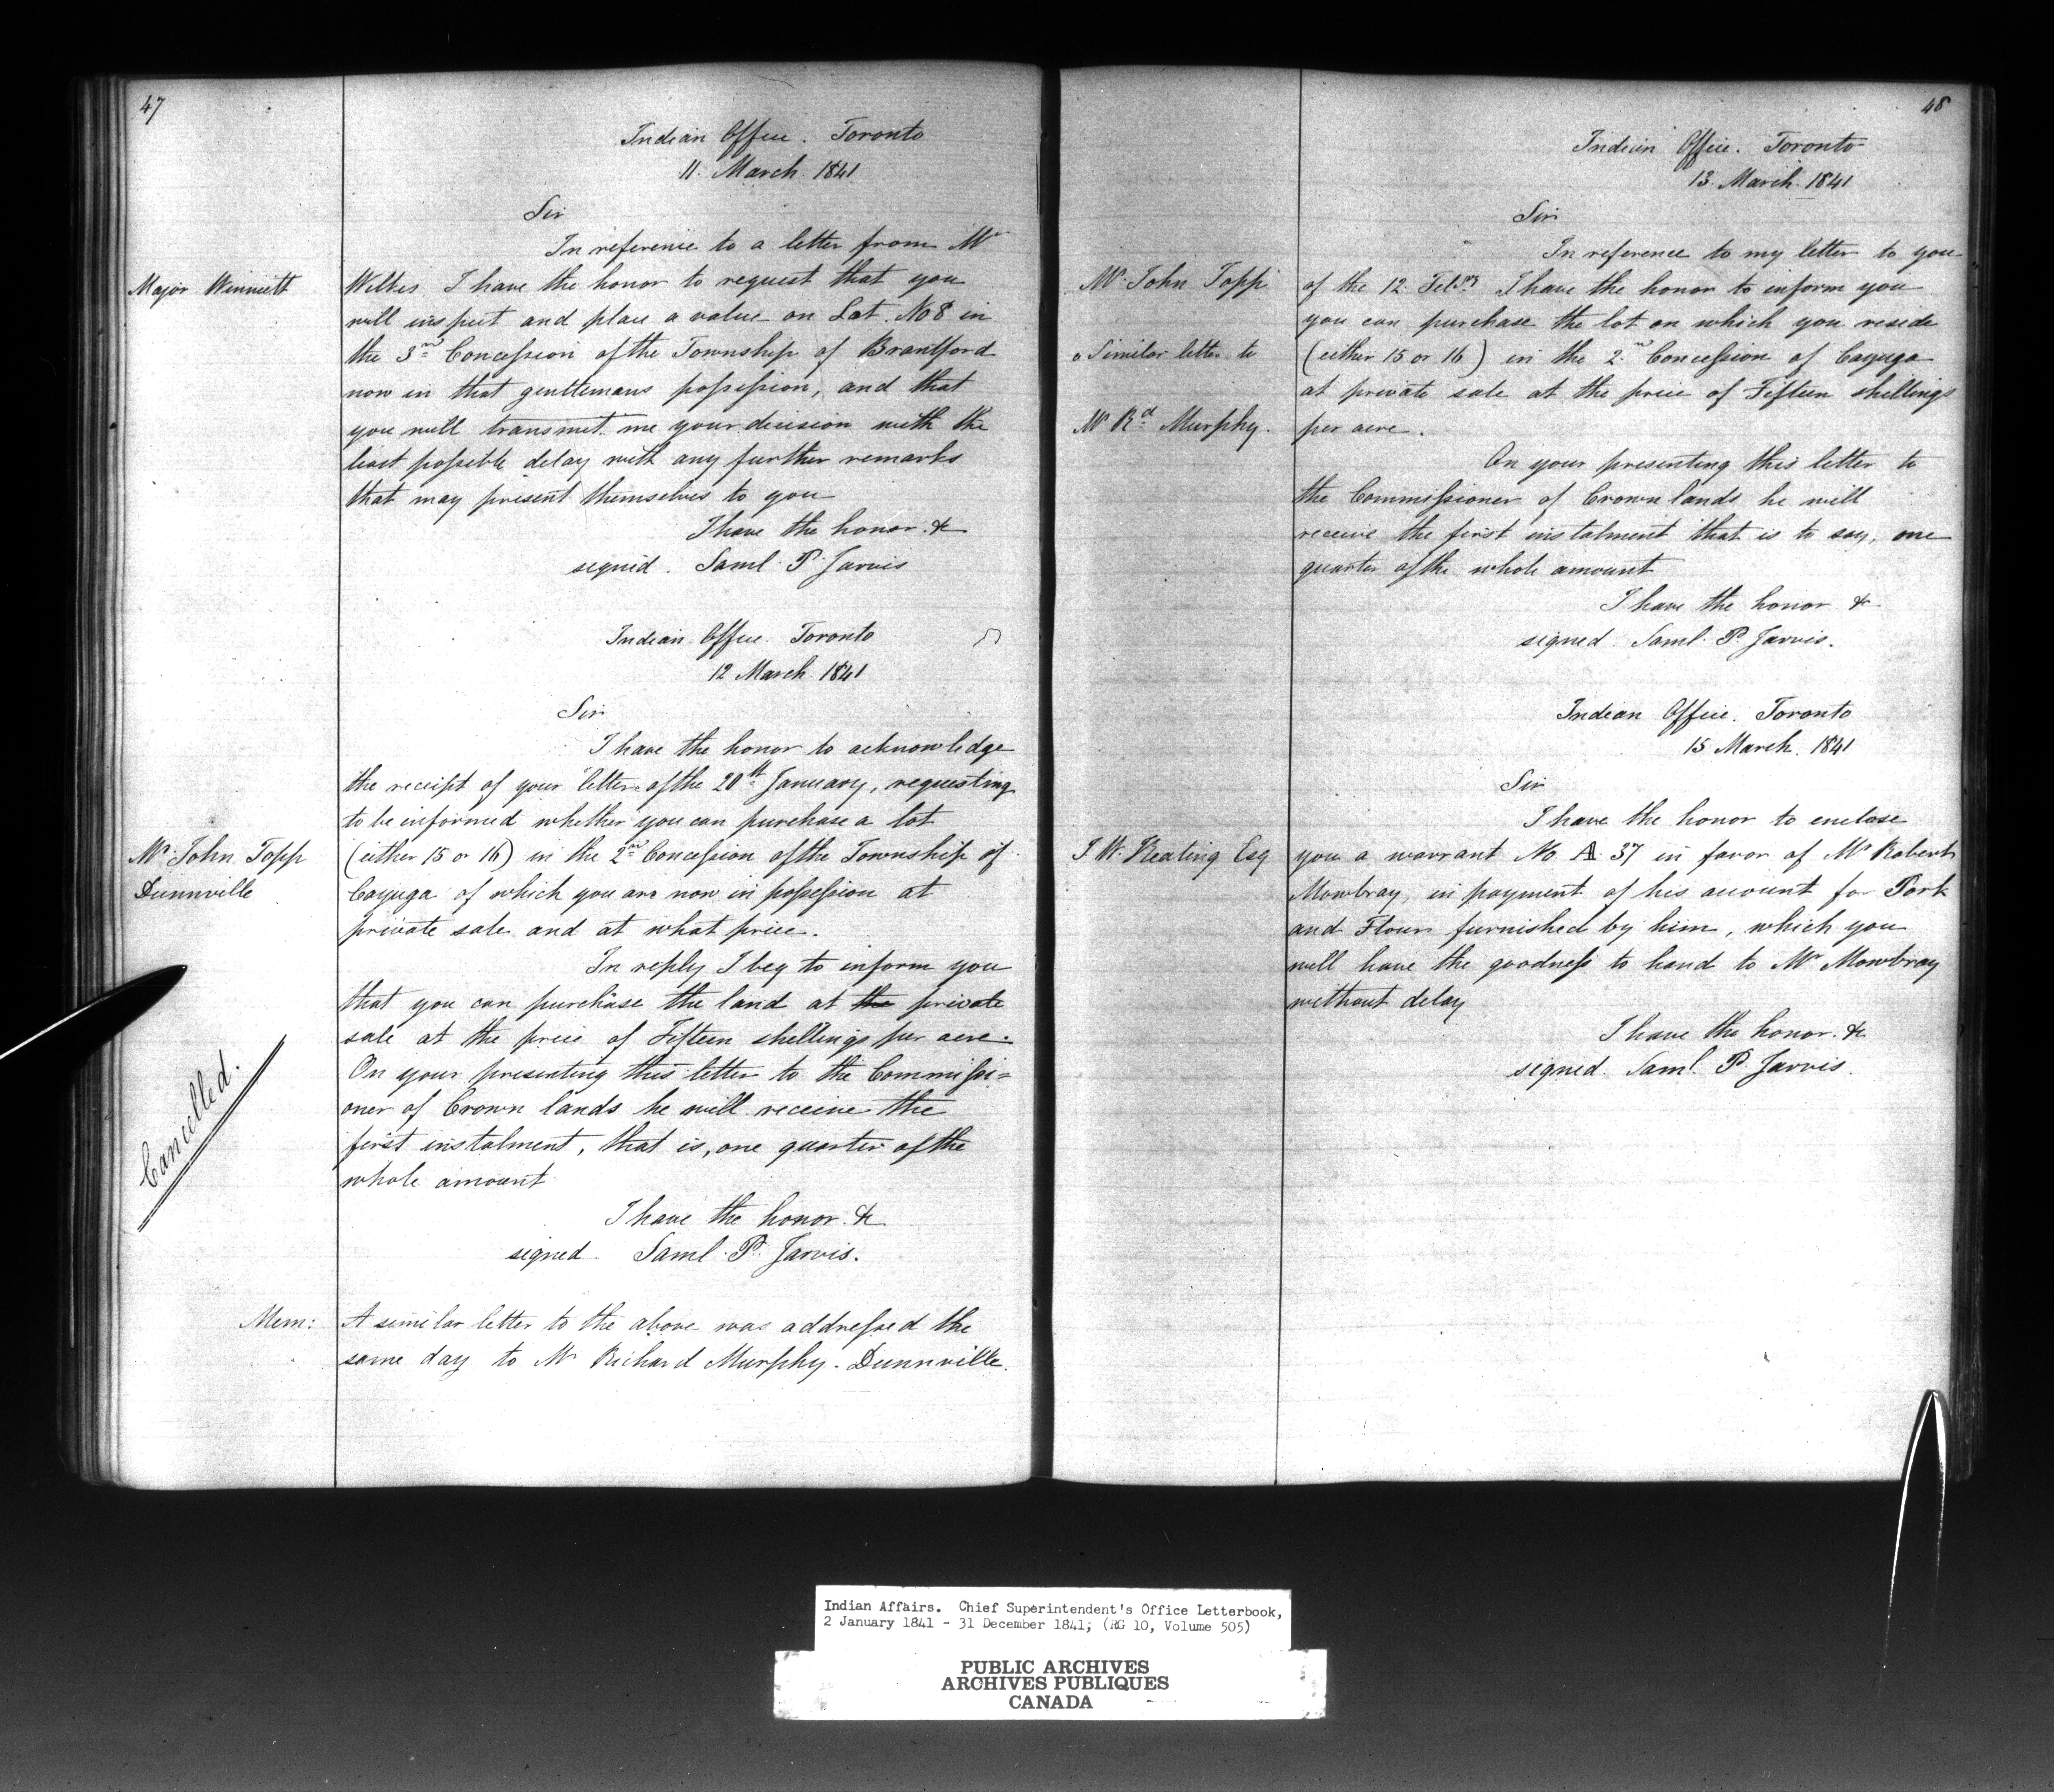 47
Indian Office. Toronto
11. March. 1841
Sir
In reference to a letter from Mr
Major Winniett
Wilkes I have the honor to request that you
will inspect and place a value on Lot. No 8 in
the 3rd Concession of the Township of Brantford
now in that gentlemans possession, and that
you will transmit me your decision with the
least possible delay with any further remarks
that may present themselves to you
I have the honor. &c
signed. Saml. P. Jarvis
Indian. Office. Toronto
12 March. 1841
Sir
I have the honor to acknowledge
the receipt of your letter of the 20th January, requesting
to be informed whether you can purchase a lot
Mr. John Topp
(either 15 or 16) in the 2nd Concession of the Township of
Dunnville
Cayuga of which you are now in possession at
private sale and at what price.
In reply I beg to inform you
that you can purchase the land at the private
sale at the price of Fifteen shillings per acre.
On your presenting this letter to the Commissi=
oner of Crown lands he will receive the
first instalment, that is, one quarter of the
whole amount
Cancelled.
I have the honor. &c
signed Saml. P. Jarvis.
Mem: A similar letter to the above was addressed the
same day to Mr Richard Murphy. Dunnville.
48
Indian Office. Toronto
13. March. 1841
Sir
In reference to my letter to you
Mr. John Topp
of the 12. Feby I have the honor to inform you
you can purchase the lot on which you reside
a Similar letter to
(either 15 or 16) in the 2nd Concession of Cayuga
at private sale at the price of Fifteen shillings
Mr Rd. Murphy.
per acre.
On your presenting this letter to
the Commissioner of Crown lands he will
receive the first instalment that is to say, one
quarter of the whole amount
I have the honor &c
signed Saml. P. Jarvis.
Indian Office. Toronto
15 March. 1841
Sir
I have the honor to enclose
J. W. Keating Esq
you a warrant No A. 37 in favor of Mr Robert
Mowbray, in payment of his account for Pork
and Flour furnished by him, which you
will have the goodness to hand to Mr Mowbray
without delay
I have the honor. &c
signed. Saml. P. Jarvis.
Indian Affairs. Chief Superintendent's Office Letterbook,
2 January 1841 - 31 December 1841; (RG 10, Volume 505)
PUBLIC ARCHIVES
ARCHIVES PUBLIQUES
CANADA